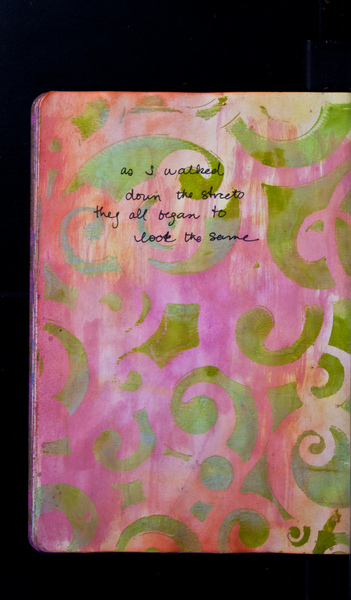 as I walked
down the streets
they all began to
look the same